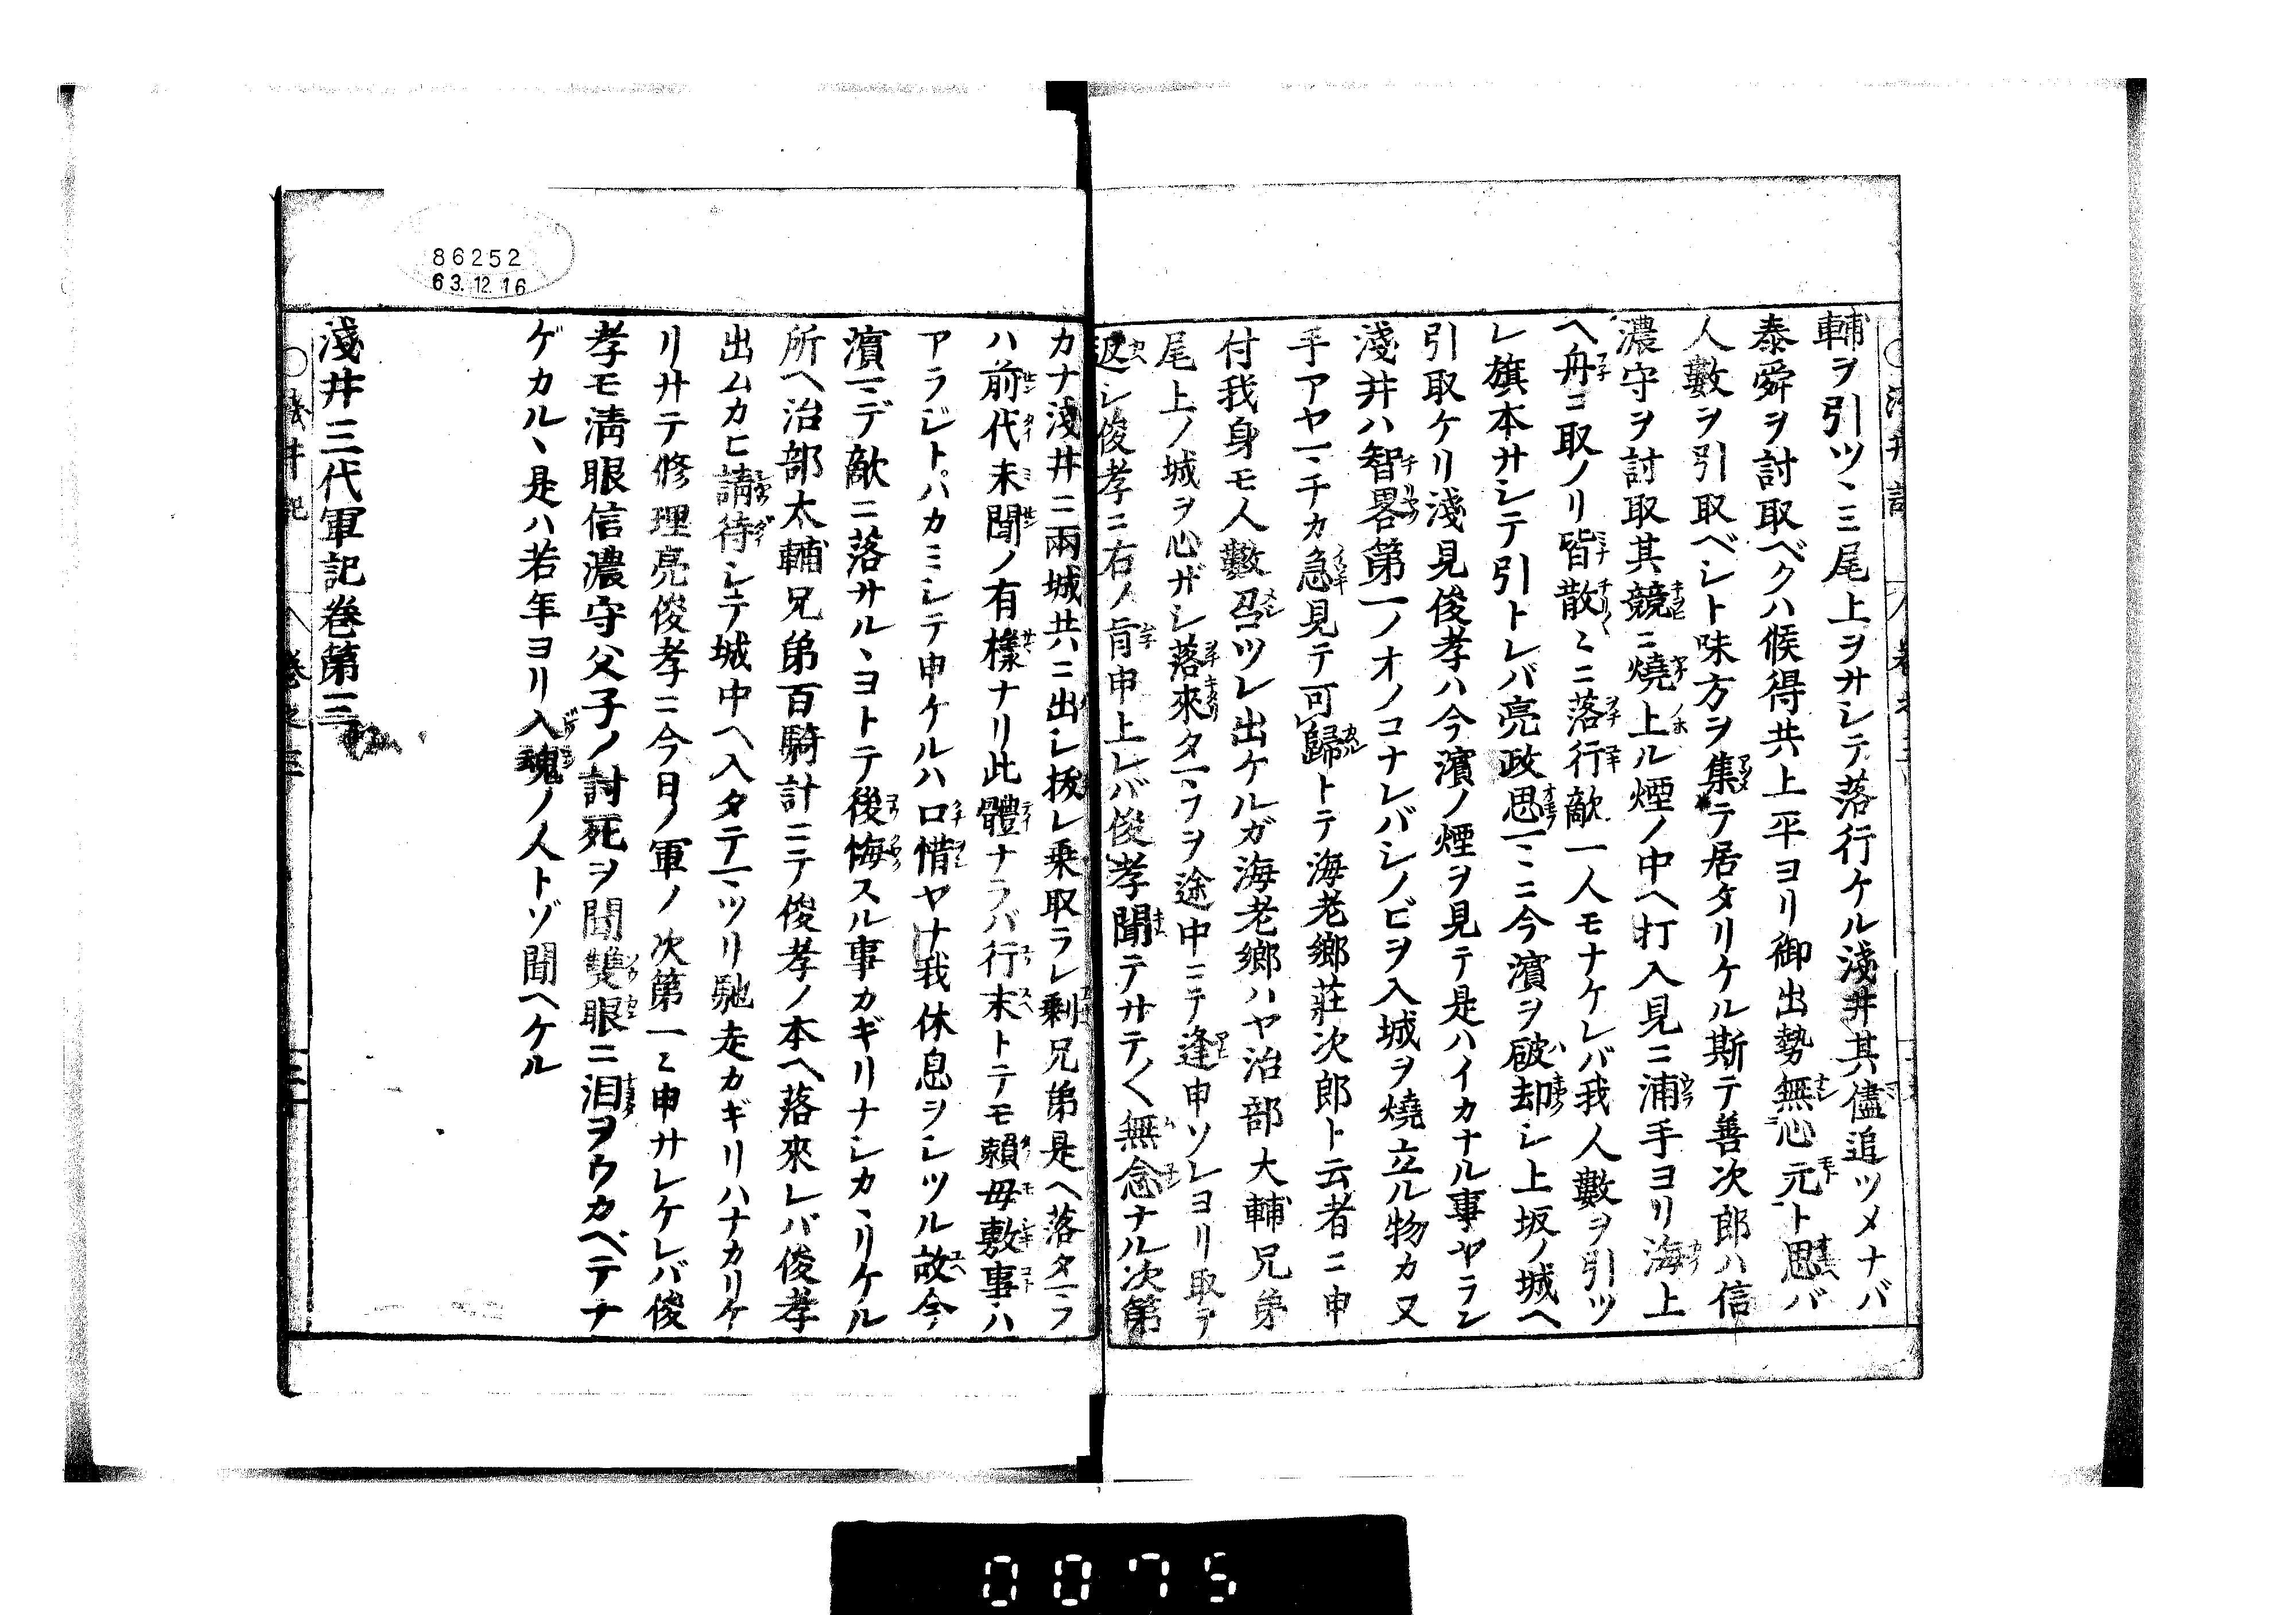 輔ヲ引ツヽ三尾上ヲサシテ落行ケル淺井其儘追ツメナバ
泰舜ヲ討取ベクハ候得共上平ヨリ御出勢無心元ト思バ
人數ヲ引取ベシト味方ヲ集テ居タリケル斯テ善次郎ハ信
濃守ヲ討取其競ニ燒上ル煙ノ中ヘ打入見ニ浦手ヨリ海上
ヘ舟ニ取ノリ皆散〻ニ落行敵一人モナケレバ我人數ヲ引ツ
レ旗本サシテ引トレバ亮政思マヽニ今濱ヲ破却シ上坂ノ城ヘ
引取ケリ淺見俊孝ハ今濱ノ煙ヲ見テ是ハイカナル事ヤラン
淺井ハ智畧第一ノオノコナレバシノビヲ入城ヲ燒立ル物カ又
手アヤマチカ急見テ可歸トテ海老郷莊次郎ト云者ニ申
付我身モ人數召ツレ出ケルガ海老郷ハヤ治部大輔兄弟
尾上ノ城ヲ心ザシ落來タマフヲ途中ニテ逢申ソレヨリ取テ
返シ俊孝ニ右ノ旨申上レバ俊孝聞テサテ〱無念ナル次第
カナ淺井ニ兩城共ニ出シ抜レ乗取ラレ剰兄弟是ヘ落タマフ
ハ前代未聞ノ有樣ナリ此體ナラバ行末トテモ頼母敷事ハ
アラジトハカミシテ申ケルハ口惜ヤナ我休息ヲシツル故今
濱マデ敵ニ落サルヽヨトテ後悔スル事カギリナシカヽリケル
所ヘ治部太輔兄弟百騎計ニテ俊孝ノ本ヘ落來レバ俊孝
出ムカヒ請待シテ城中ヘ入タテマツリ馳走カギリハナカリケ
リサテ修理亮俊孝ニ今日ノ軍ノ次第一〻申サレケレバ俊
孝モ淸眼信濃守父子ノ討死ヲ聞雙眼ニ泪ヲウカベテナ
ゲカルヽ是ハ若年ヨリ入魂ノ人トゾ聞ヘケル
淺井三代軍記卷第三
86252
63.12.16
0075